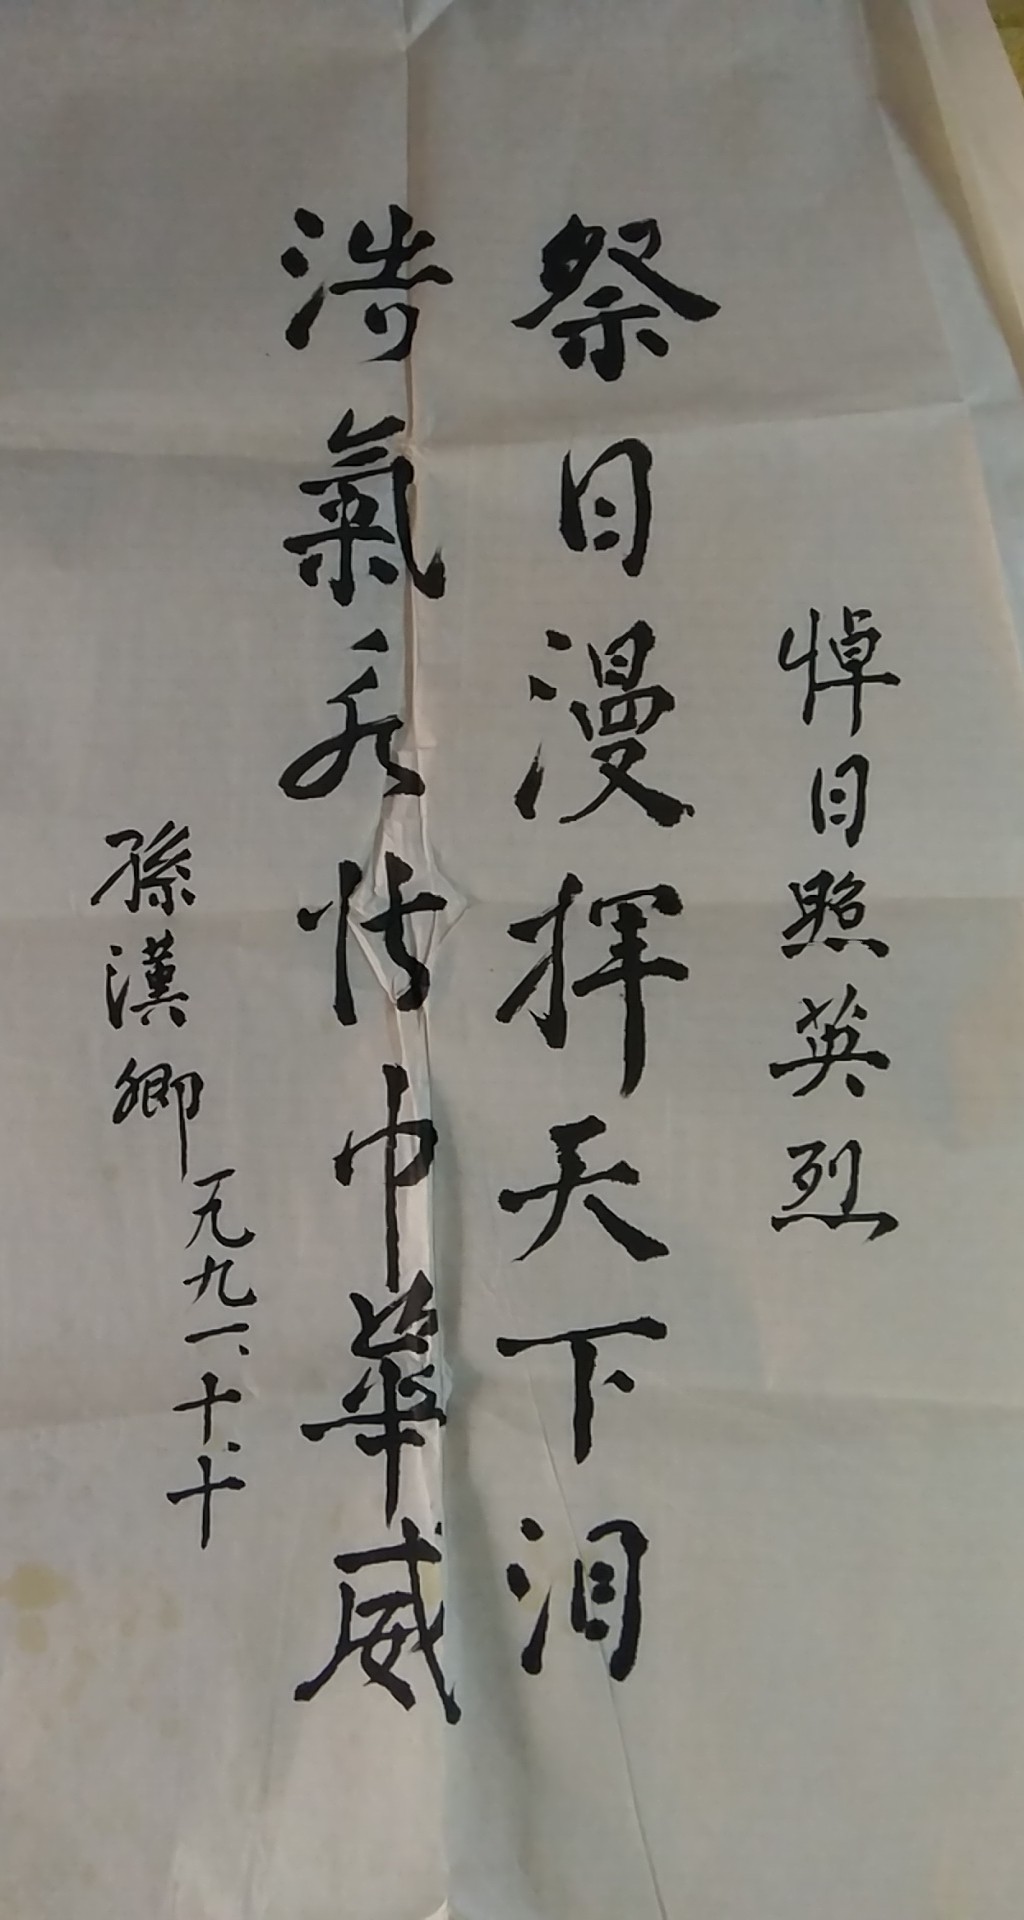 悼日照英烈
祭日漫揮天下泪
浩氣永中華威
孫漢卿
一九九一、十、十